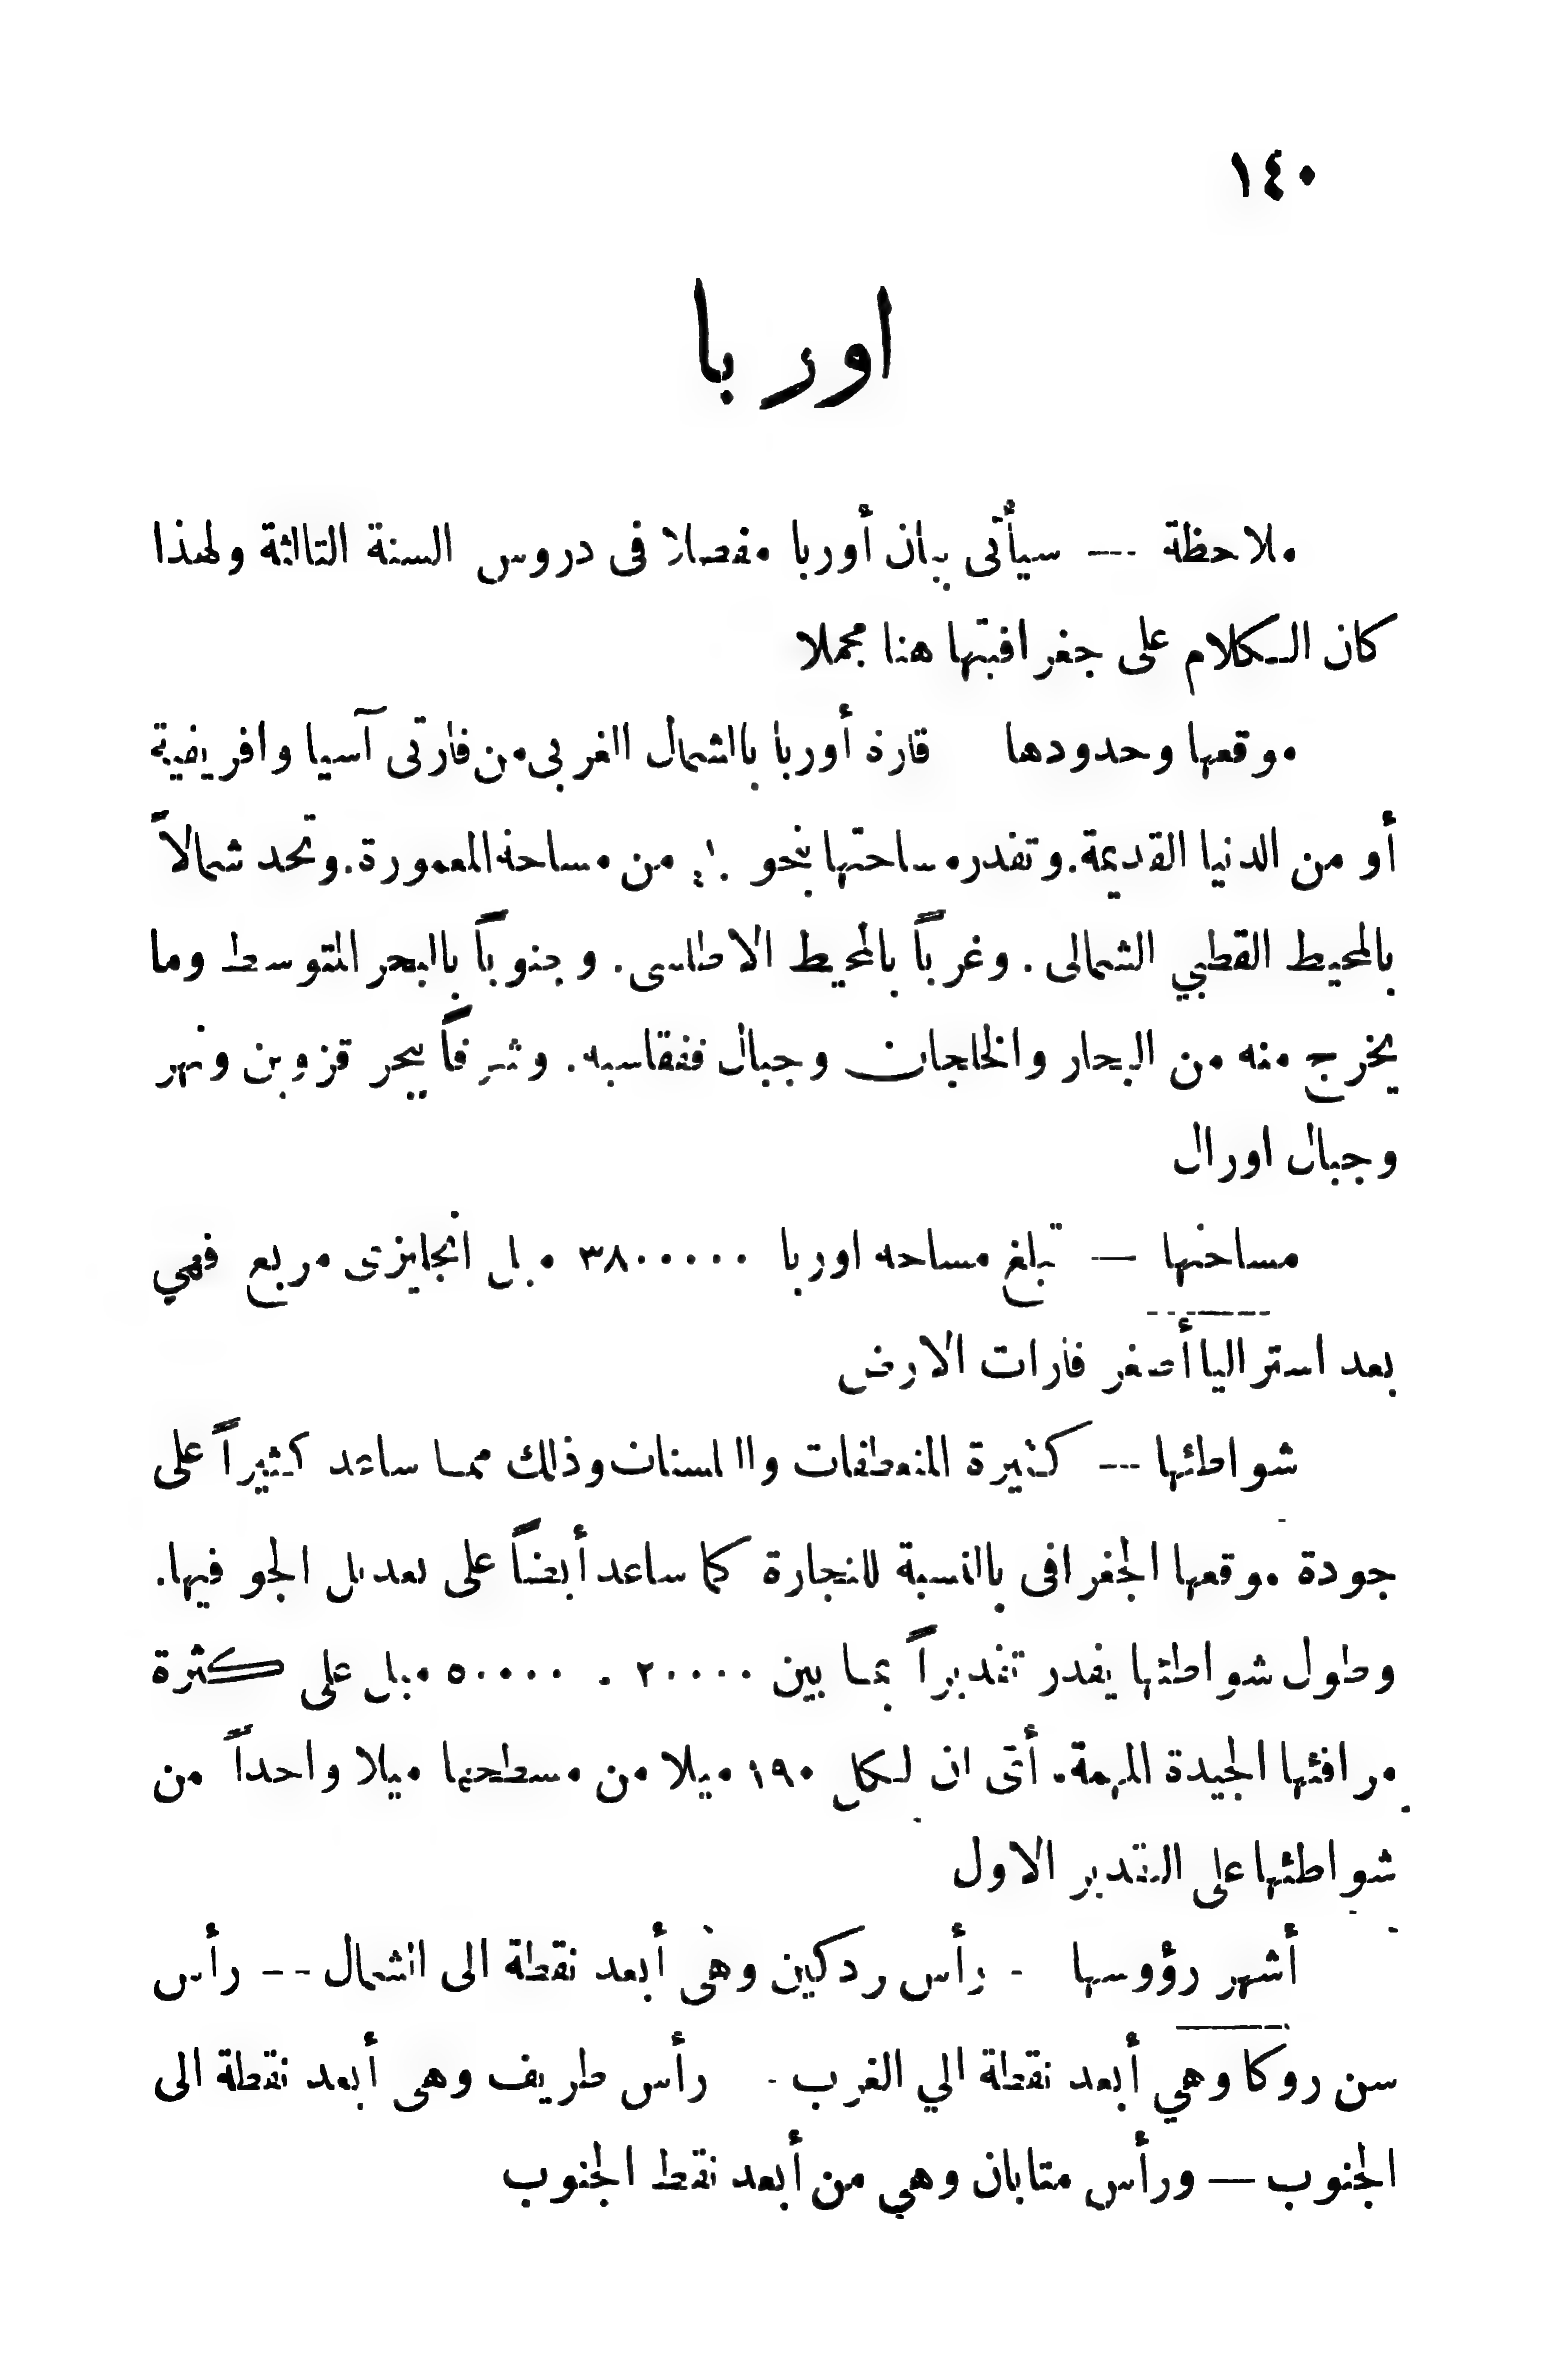 ١٤٠
اوربا
ملاحظة — سيأتى بيان أوربا مفصلا فى دروس السنة الثالثة ولهذا
كان الكلام على جغرافيتها هنا مجملا
موقعها وحدودها قارة أوربا بالشمال الغربى من قارتى آسيا وافريقية
أو من الدنيا القديمة. وتقدر مساحتها بنحو من مساحة المعمورة. وتحد شمالاً
بالمحيط القطبي الشمالى. وغرباً بالمحيط الاطلسى. وجنوباً بالبحر المتوسط وما
يخرج منه من البحار والخلجان وجبال قفقاسيه. وشرقاً ببحر قزوين ونهر
وجبال اورال
مساحتها — تبلغ مساحة اوربا ٣٨٠٠٠٠٠ ميل انجليزى مربع فهي
بعد استراليا أصغر قارات الارض
شواطئها — كثيرة المنعطفات والالسنات وذلك مما ساعد كثيراً على
جودة موقعها الجغرافى بالنسبة للتجارة كما ساعد أيضاً على تعديل الجو فيها.
وطول شواطئها يقدر تقديراً بما بين ٢٠٠٠٠ . ٥٠٠٠٠ ميل على كثرة
مرافئها الجيدة المهمة. أتى ان لكل ١٩٠ ميلا من مسطحها ميلا واحداً من
شواطئها على التقدير الاول
أشهر رؤوسها - رأس ردكين وهى أبعد نقطة الى الشمال -- رأس
سن روكا وهي أبعد نقطة الي الغرب - رأس طريف وهى أبعد نقطة الى
الجنوب — ورأس متابان وهي من أبعد نقط الجنوب